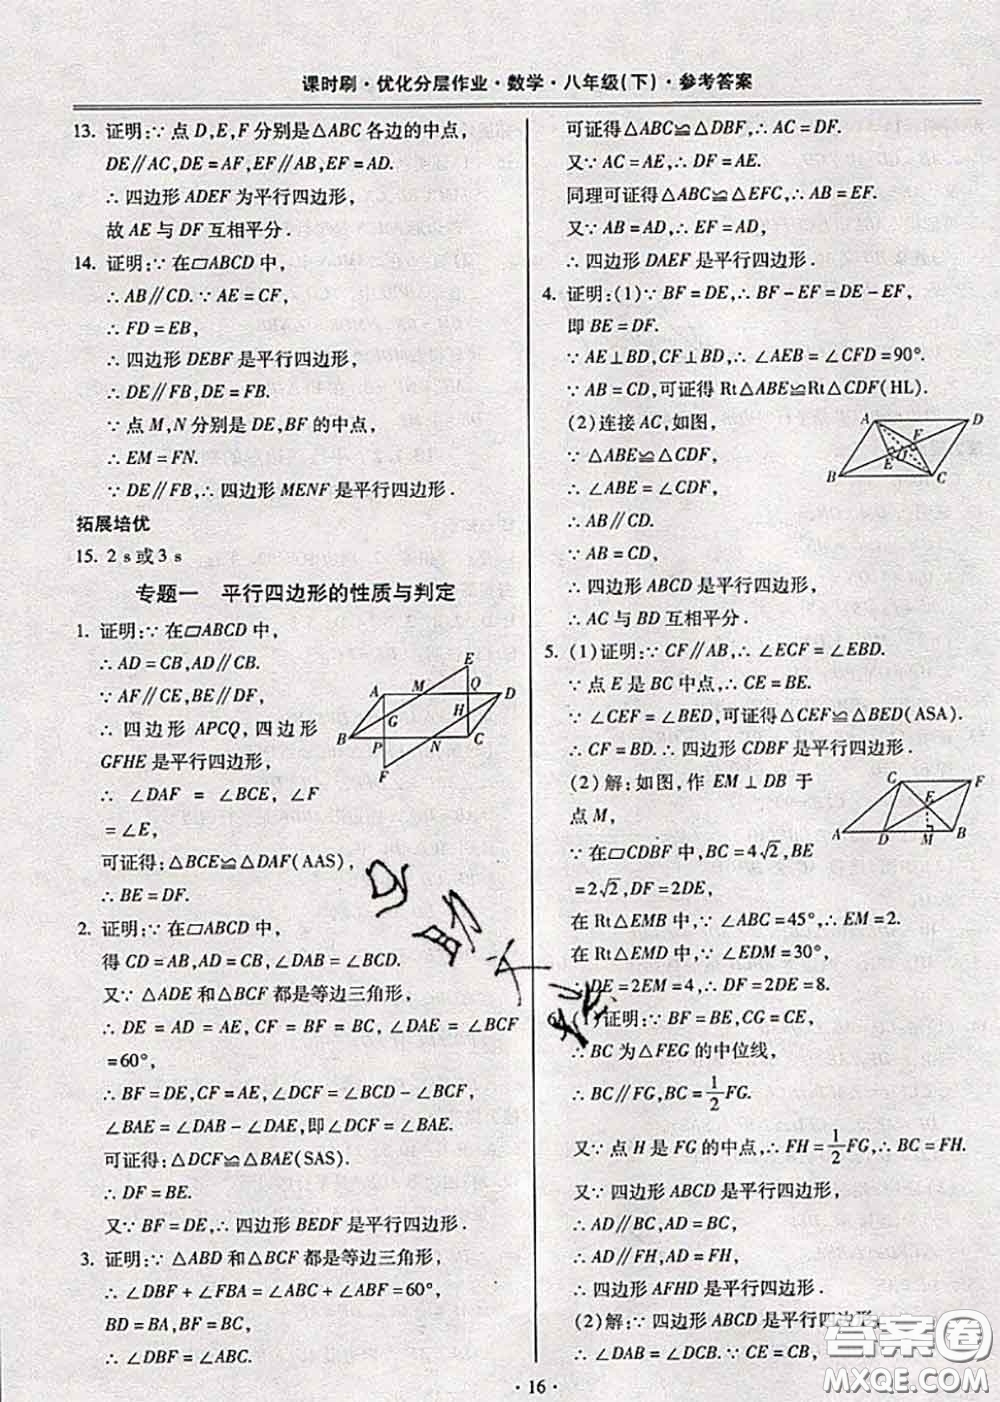 课时刷·优化分层作业·数学·八年级(下)·参考答案
13. 证明:∵点D,E,F分别是△ABC各边的中点,
DE∥AC,DE=AF,EF∥AB,EF=AD.
∴四边形ADEF为平行四边形,
故AE与DF互相平分.
14. 证明:∵在▱ABCD中,
∴AB∥CD.∵AE=CF,
∴FD=EB,
∴四边形DEBF是平行四边形,
∴DE∥FB,DE=FB.
∵点M,N分别是DE,BF的中点,
∴EM=FN.
∵DE∥FB,∴四边形MENF是平行四边形.
拓展培优
15. 2 s或3 s
专题一 平行四边形的性质与判定
1. 证明:∵在▱ABCD中,
∴AD=CB,AD∥CB.
∵AF∥CE,BE∥DF,
∴四边形APCQ,四边形
GFHE是平行四边形,
∴∠DAF=∠BCE,∠F
=∠E,
可证得:△BCE≌△DAF(AAS),
∴BE=DF.
E
A
M
Q
D
G
H
B
P
N
C
F
2. 证明:∵在▱ABCD中,
得CD=AB,AD=CB,∠DAB=∠BCD.
又∵△ADE和△BCF都是等边三角形,
∴DE=AD=AE,CF=BF=BC,∠DAE=∠BCF
=60°,
∴BF=DE,CF=AE,∠DCF=∠BCD-∠BCF,
∠BAE=∠DAB-∠DAE,即∠DCF=∠BAE.
可证得:△DCF≌△BAE(SAS).
∴DF=BE.
又∵BF=DE,∴四边形BEDF是平行四边形.
3. 证明:∵△ABD和△BCF都是等边三角形,
∴∠DBF+∠FBA=∠ABC+∠ABF=60°,
BD=BA,BF=BC,
∴∠DBF=∠ABC.
可证得△ABC≌△DBF,∴AC=DF.
又∵AC=AE,∴DF=AE.
同理可证得△ABC≌△EFC,∴AB=EF.
又∵AB=AD,∴EF=AD,
∴四边形DAEF是平行四边形.
4. 证明:(1)∵BF=DE,∴BF-EF=DE-EF,
即BE=DF.
∵AE⊥BD,CF⊥BD,∴∠AEB=∠CFD=90°.
∵AB=CD,可证得Rt△ABE≌Rt△CDF(HL).
(2)连接AC,如图,
∵△ABE≌△CDF,
∴∠ABE=∠CDF,
∴AB∥CD.
∵AB=CD,
∴四边形ABCD是平行四边形,
∴AC与BD互相平分.
A
D
F
E
B
C
5. (1)证明:∵CF∥AB,∴∠ECF=∠EBD.
∵点E是BC中点,∴CE=BE.
∵∠CEF=∠BED,可证得△CEF≌△BED(ASA).
∴CF=BD.∴四边形CDBF是平行四边形.
(2)解:如图,作EM⊥DB于
点M,
∵在▱CDBF中,BC=4√2,BE
=2√2,DF=2DE,
在Rt△EMB中,∵∠ABC=45°,∴EM=2.
在Rt△EMD中,∵∠EDM=30°,
∴DE=2EM=4,∴DF=2DE=8.
C
F
E
A
D
M
B
(1)证明:∵BF=BE,CG=CE,
∴BC为△FEG的中位线,
∴BC∥FG,BC=1/2FG.
又∵点H是FG的中点,∴FH=1/2FG,∴BC=FH.
又∵四边形ABCD是平行四边形,
∴AD∥BC,AD=BC,
∴AD∥FH,AD=FH,
∴四边形AFHD是平行四边形.
(2)解:∵四边形ABCD是平行四边形,
∴∠DAB=∠DCB.∵CE=CB,
·16·
答案圈
MXQE.COM